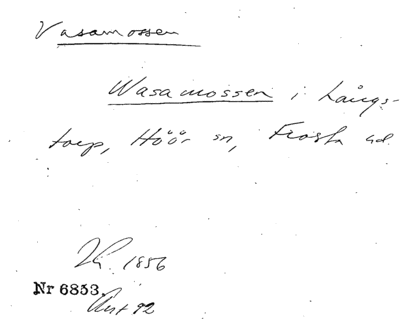 Vasamossen
Wasamossen i Långs-
torp, Höör sn, Frosta hd.
1856
Nr 6853.
92